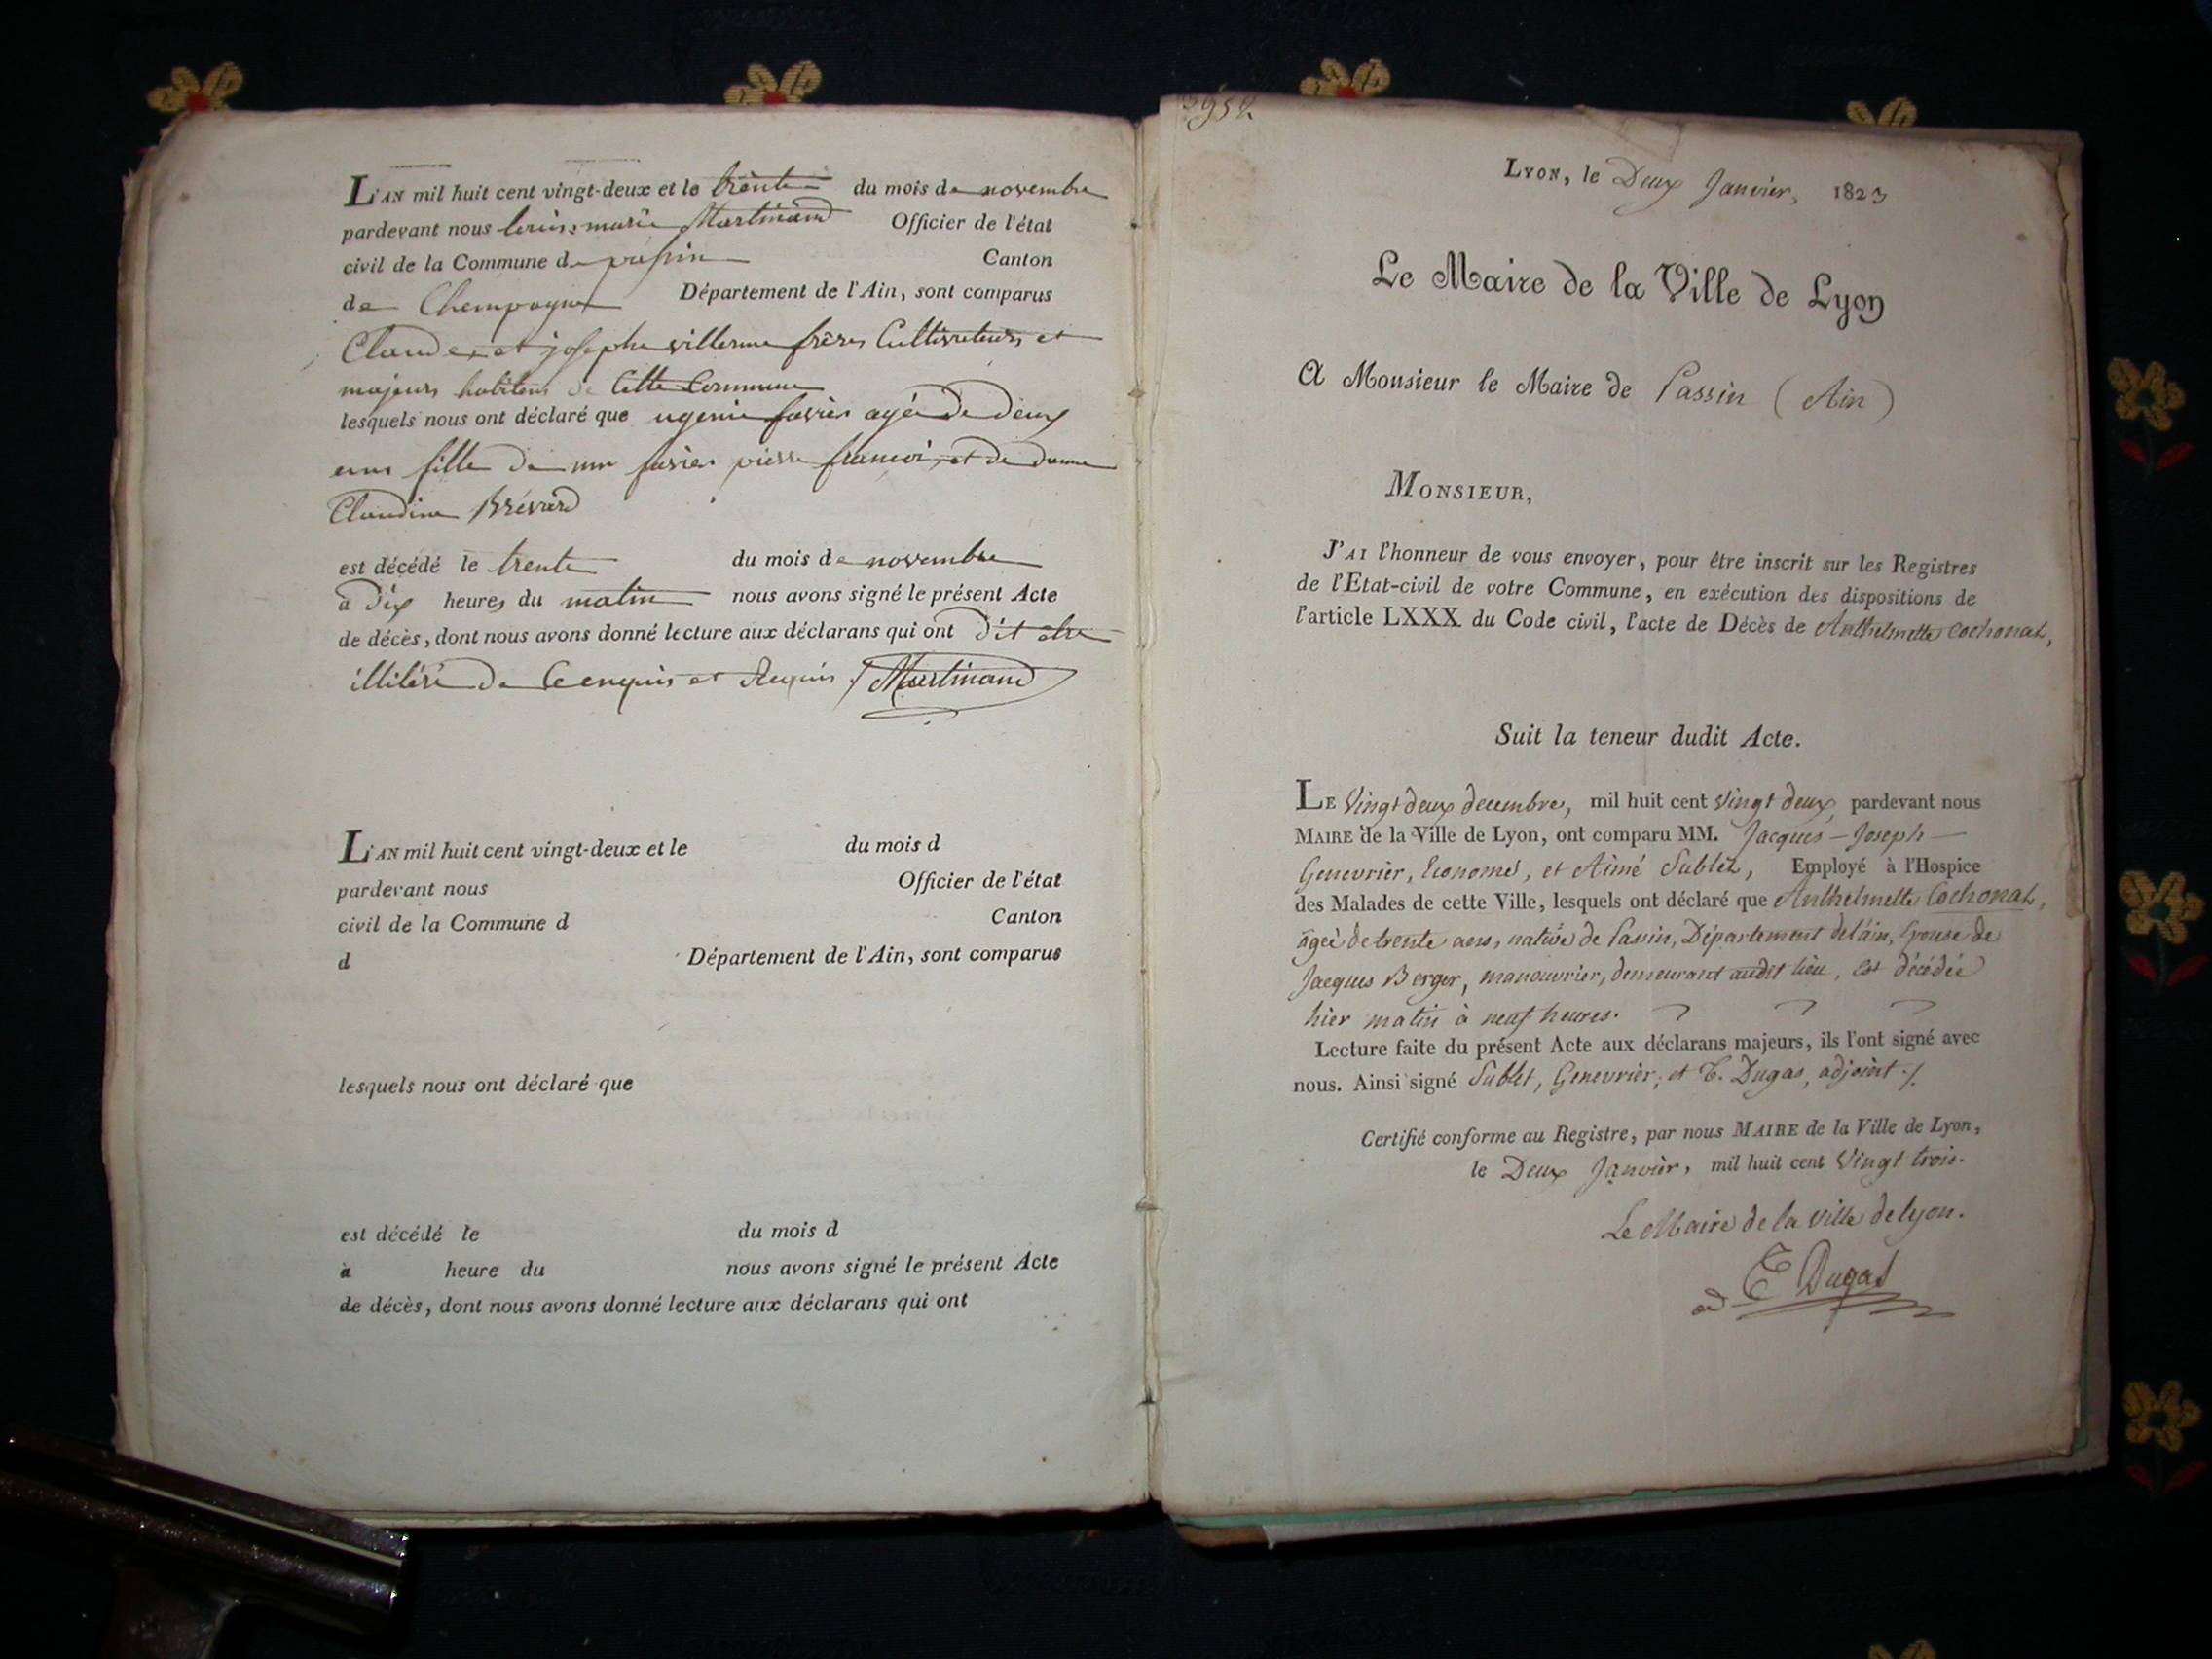 L'AN mil huit cent vingt-deux et le trente du mois de novembre
pardevant nous louis marie Martinand Officier de l'état
civil de la Commune de passin Canton
de Champagne Département de l'Ain, sont comparus
Claude et josephe villerme frères Cultivateurs et
majeurs habitens de Cette Commune
lesquels nous ont déclaré que ugenie favier agée de deux
ans fille de mr favier pierre francoi et de dame
Claudine Brévard
est décédé le trente du mois de novembre
à dix heures du matin nous avons signé le présent Acte
de décès, dont nous avons donné lecture aux déclarans qui ont dit etre
illitéré de ce enquis et Requis Martinand
L'AN mil huit cent vingt-deux et le du mois d
pardevant nous Officier de l'état
civil de la Commune d Canton
d Département de l'Ain, sont comparus
lesquels nous ont déclaré que
est décédé le du mois d
à heure du nous avons signé le présent Acte
de décès, dont nous avons donné lecture aux déclarans qui ont
LYON, le Deux Janvier, 1823
Le Maire de la Ville de Lyon
A Monsieur le Maire de Passin (Ain)
MONSIEUR,
J'AI l'honneur de vous envoyer, pour être inscrit sur les Registres
de l'Etat-civil de votre Commune, en exécution des dispositions de
l'article LXXX du Code civil, l'acte de Décès de Anthelmette Cochonat,
Suit la teneur dudit Acte.
LE Vingt deux decembre, mil huit cent Vingt deux, pardevant nous
MAIRE de la Ville de Lyon, ont comparu MM. Jacques-Joseph
Genevrier, Econome, et Aimé Sublet, Employé à l'Hospice
des Malades de cette Ville, lesquels ont déclaré que Anthelmette Cochonat,
âgée de trente ans, native de Passin, Département de l'ain, Epouse de
Jacques Berger, manouvrier, demeurant audit lieu, est décédée
hier matin à neuf heures.
Lecture faite du présent Acte aux déclarans majeurs, ils l'ont signé avec
nous. Ainsi signé Sublet, Genevrier, et E. Dugas, adjoint ./.
Certifié conforme au Registre, par nous MAIRE de la Ville de Lyon,
le Deux Janvier, mil huit cent Vingt trois.
Le Maire de la Ville de Lyon.
E Dugas
ad